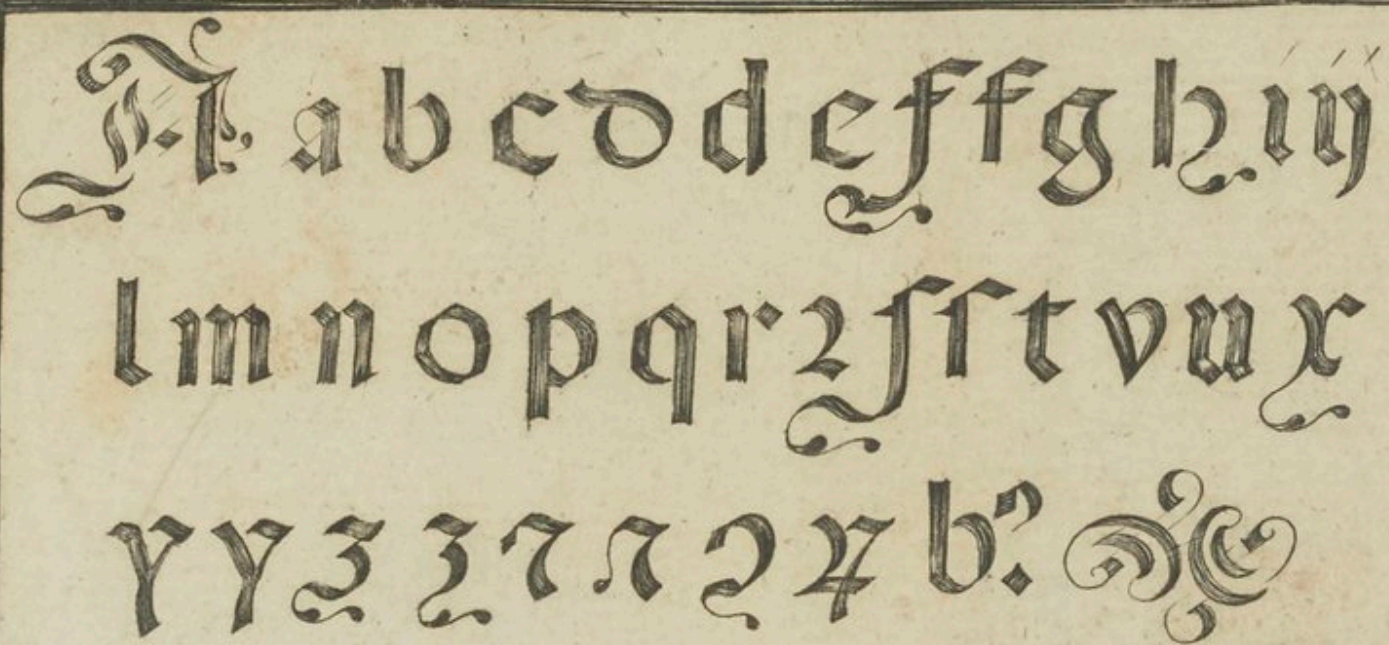 A a b c d d e f f g h i ij
l m n o p q r ꝛ ſ ſ t v u x
y y z z ⁊ ⁊ ꝯ ꝝ b?